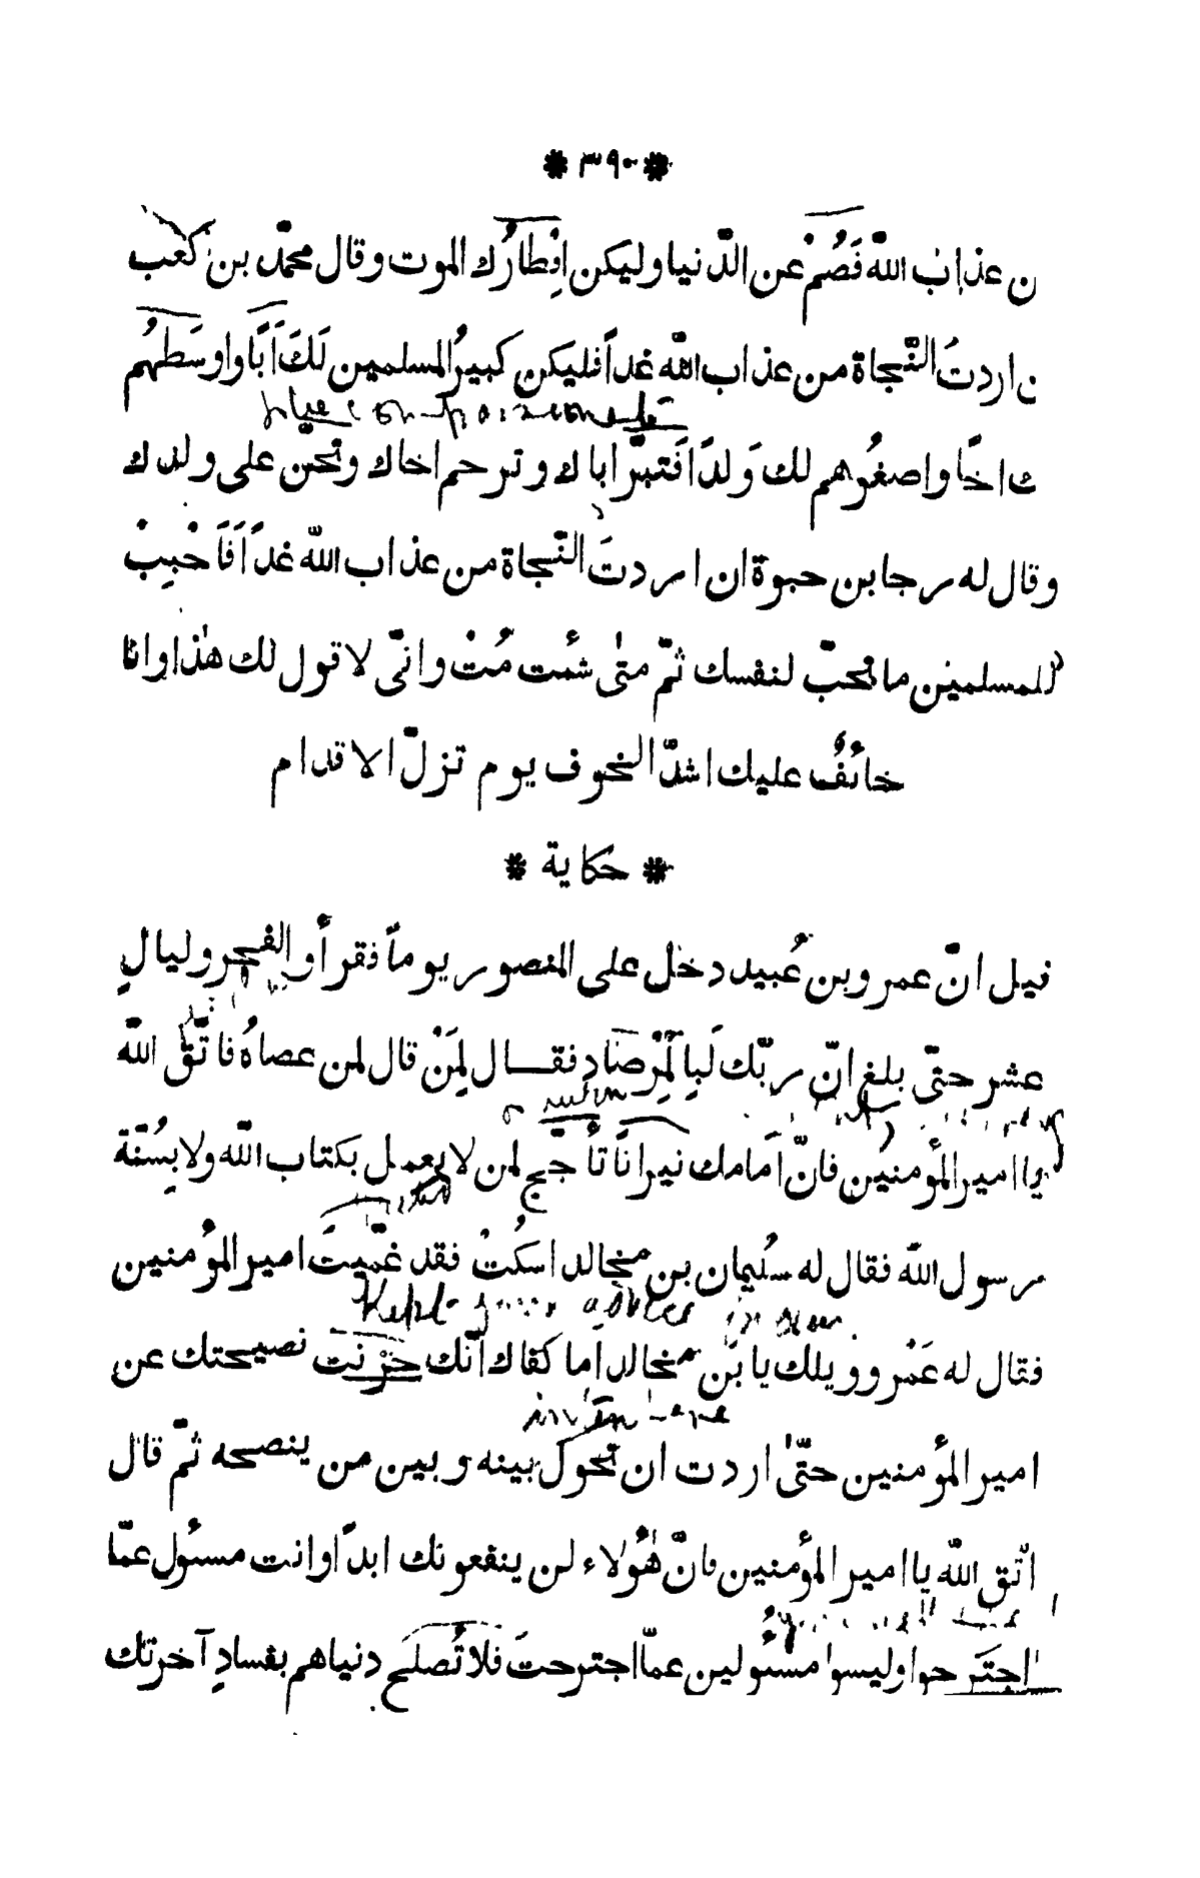 * ٣٩٠ *
ن عذاب اللّه فَصُمْ عن الدّنيا وليكن اِفْطارُك الموت وقال محمّد بن كَعْب
ن اردتَ النّجاة من عذاب اللّه غداً فليكن كبيرُ المسلمين لَكَ اَبًا واوسَطهُم
ك اخًا واصغُرهم لك وَلدًا فَتبرَّ اباك وترحم اخاك وتحنّ على ولدك
وقال له رجا بن حبوة ان اردتَ النّجاة من عذاب اللّه غداً فَاَحْبِبْ
للمسلمين ما تحبّ لنفسك ثمّ متىٰ شئت مُتْ وانّى لاقول لك هٰذا وانا
خائفٌ عليك اشدّ الخوف يوم تزلّ الاقدام
* حكاية *
قيل انّ عمرو بن عُبيد دخل على المنصور يوماً فقرأ والفجر وليالٍ
عشر حتّى بلغ انّ ربّك لَبِالْمِرْصَادِ فقال لِمَنْ قال لمن عصاهُ فاتّق اللّه
يا امير المؤمنين فانّ اَمامك نيرانًا تأجّج لمن لا يعمل بكتاب اللّه ولا بِسُنّة
رسول اللّه فقال له سُليمان بن مخالد اسكُتْ فقد غمّيتَ امير المؤمنين
فقال له عَمْرو ويلك يا بن مخالد اَما كفاك انّك خزنت نصيحتك عن
امير المؤمنين حتّىٰ اردت ان تحول بينه وبين من ينصحه ثمّ قال
اتّق اللّه يا امير المؤمنين فانّ هٰؤلاء لن ينفعونك ابداً وانت مسئول عمّا
اجتَرحوا وليسوا مسئولين عمّا اجترحتَ فلا تُصلح دنياهم بفسادِ آخرتك